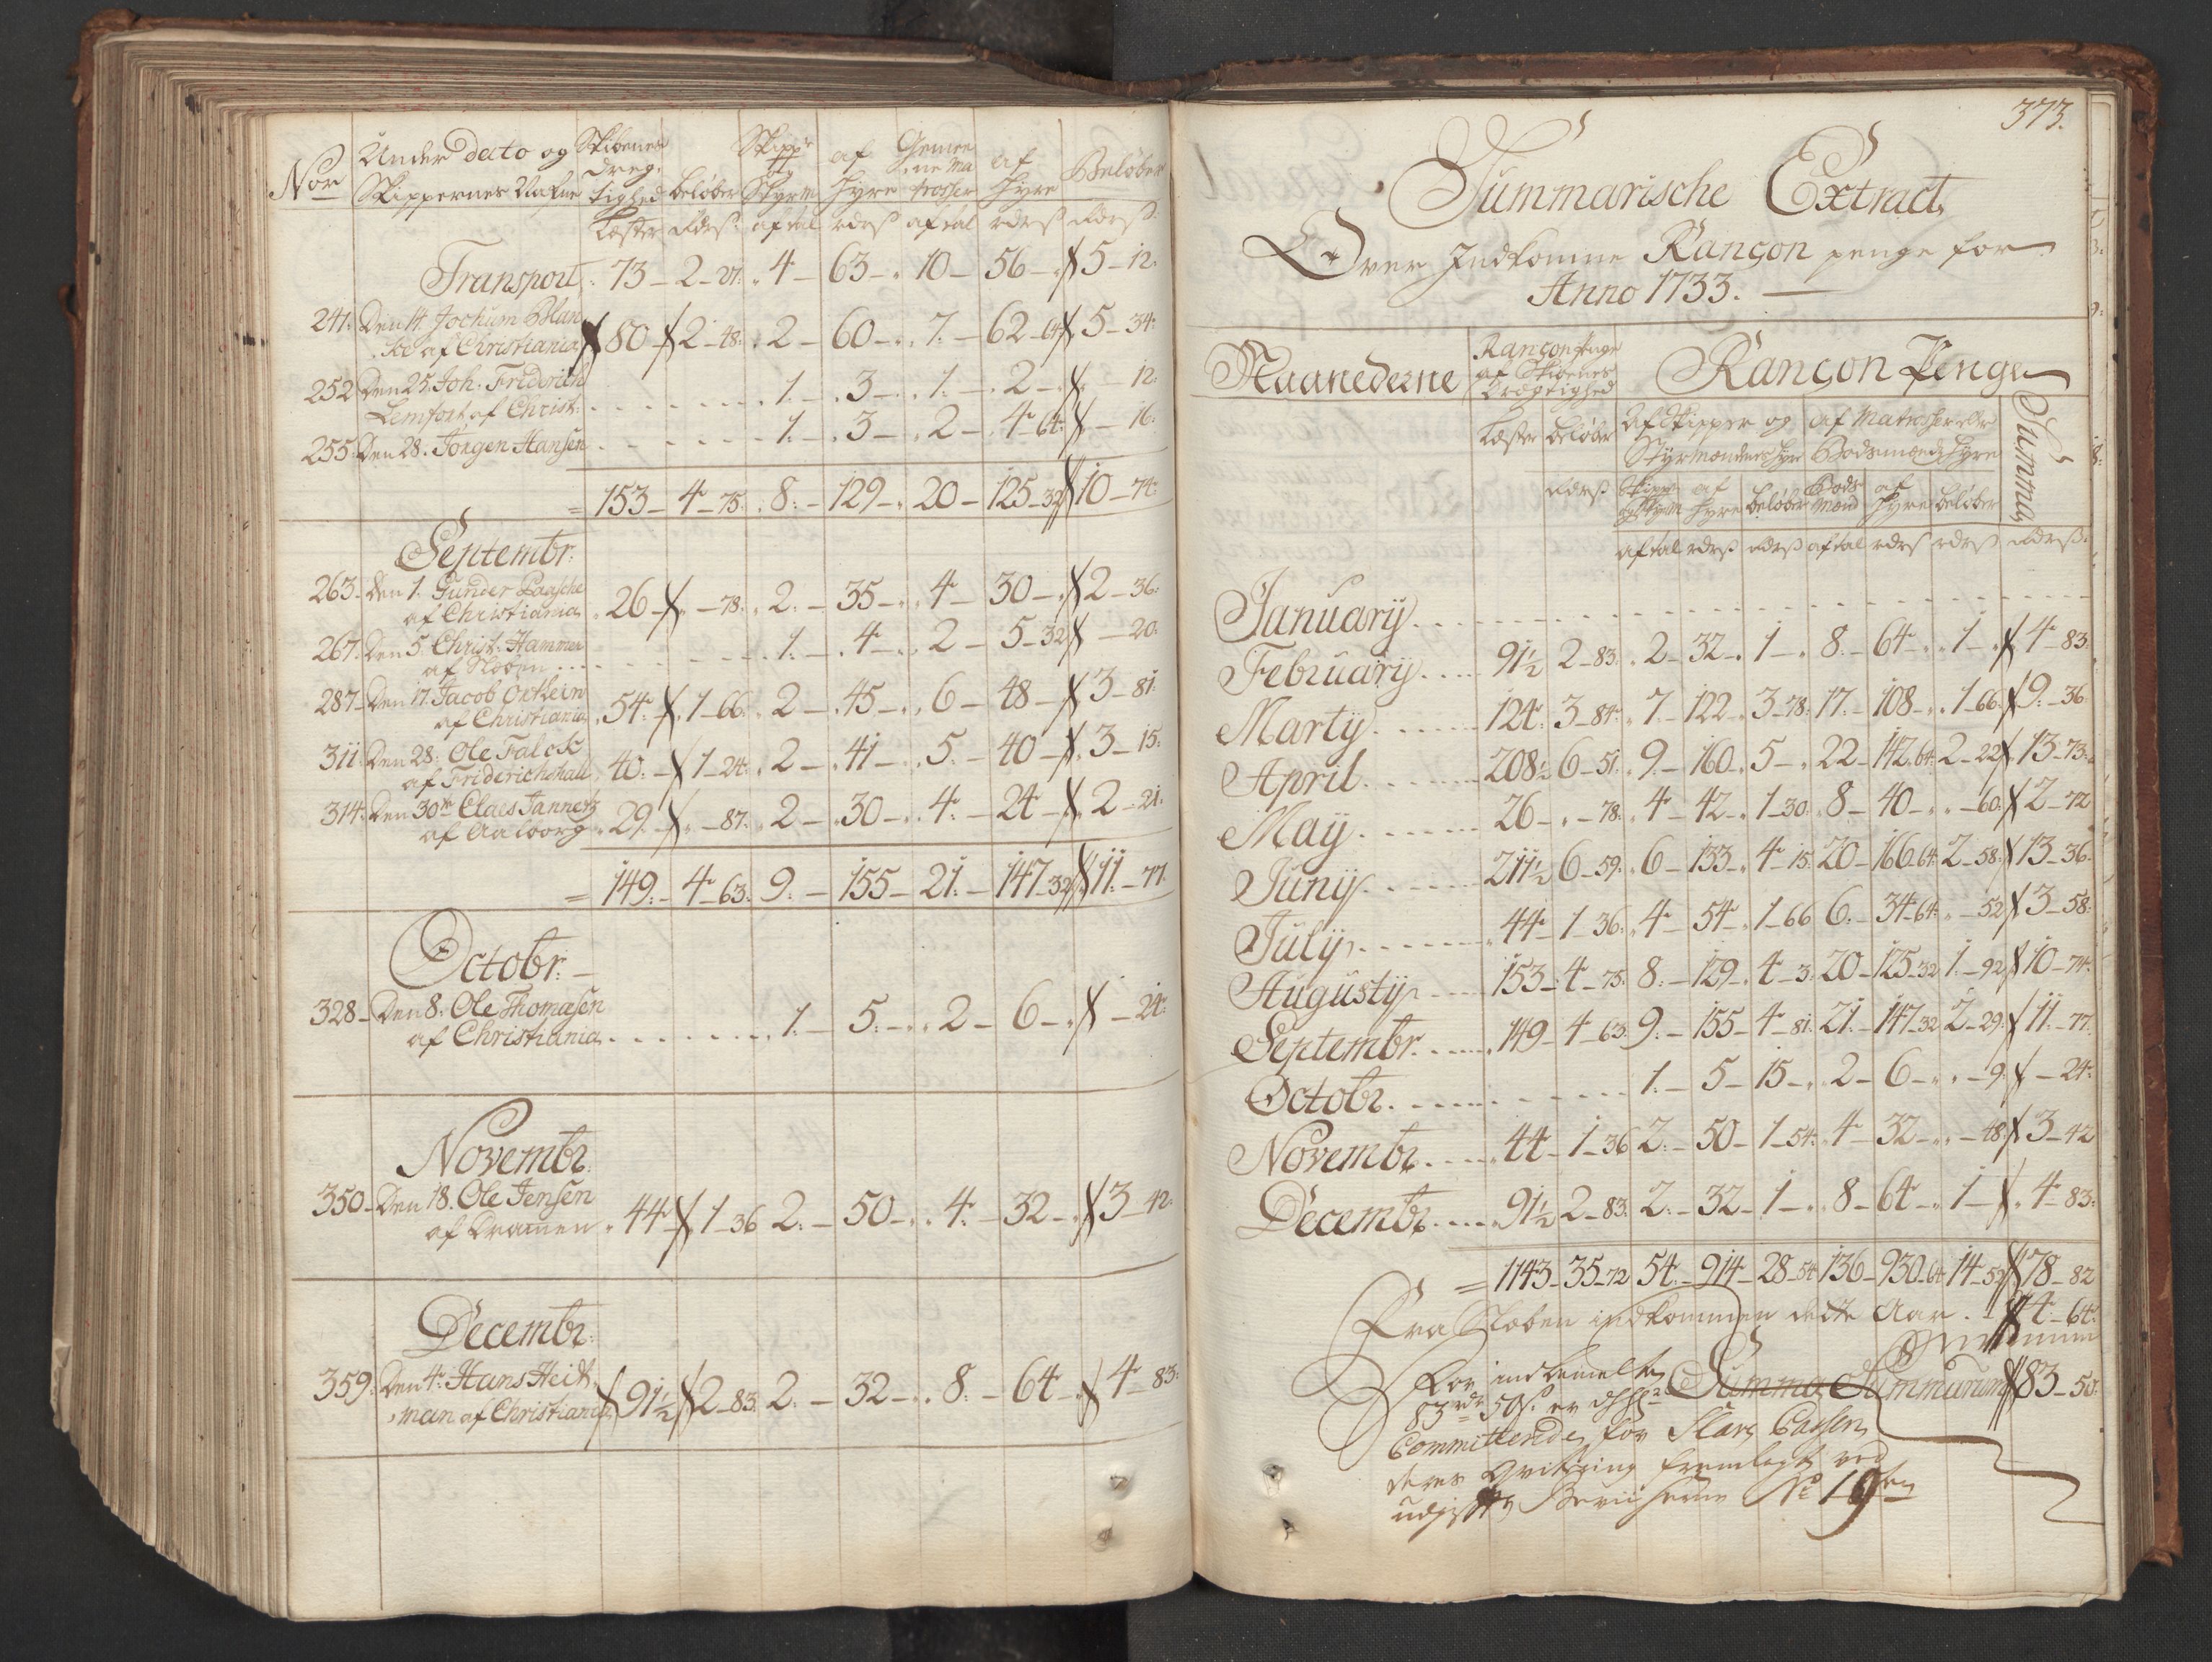 Nor Under dato og Skibenes Skippr af Gemee af Beløber
Skippernes Nafne dreg- og hyre ne Ma hyre
tighed beløber Styrm trosser
Læster Rdrß aftal rdrß aftal rdrß Rdrß
Transport. 73 - 2 - 27. 4 - 63 - 10 - 56 - 5 - 12.
241. Den 14. Jochum Blan
ke af Christiania 80 - 2 - 48. 2 - 60 - 7. - 62 - 64 5 - 34.
252 Den 25. Joh. Friderich
Lemfort af Christ: . . . . 1. - 3 - 1. - 2 - - 12.
255. Den 28. Jørgen Hansen . . . . 1. - 3 - 2 - 4 - 64. - 16.
= 153 - 4 - 75. 8. - 129 - 20 - 125 - 32 10 - 74.
Septembr:
263. Den 1. Gunder Paasche
af Christiania 26 - - 78. 2. - 35 - 4 - 30 - 2 - 36.
267. Den 5. Christ. Hammer
af Sloben . . . . 1. - 4 - 2 - 5 - 32 - 20.
287. Den 17. Jacob Ortlein
af Christiania 54 - 1 - 66. 2 - 45 - 6 - 48 - 3 - 81.
311. Den 28. Ole Falck
af Friderichshald 40. - 1 - 24. 2 - 41 - 5. - 40 - 3 - 15.
314. Den 30te Claes Jannetz
af Aalborg 29. - - 87. 2 - 30 - 4. - 24 - 2 - 21.
= 149. - 4 - 63. 9. - 155 - 21. - 147 - 32 11. - 77.
Octobr: -
328 - Den 8. Ole Thomæsen
af Christiania . . . . 1. - 5. - 2 - 6 - - 24.
Novembr.
350 - Den 18. Ole Jensen
af Dramen 44 - 1 - 36 2. - 50 - 4. - 32 - 3 - 42.
Decembr.
359. Den 4. Hans Heit
man af Christiania 91½ 2 - 83. 2. - 32 - 8. - 64 - 4 - 83.
373.
Summarische Extract,
Over Indkomne Rançon penge for
Anno 1733. -
Maanederne Rançon penge Rançon Penge
af Skibenes
Drægtighed
Læster beløber Af Skipper og af Matrosser eller Summa
Styrmændens hyre Baadsmænds hyre
Rdrß Skippr af beløber Baads af beløber
og Styrm hyre mænd hyre
aftal rdrß Rdrß aftal rdrß rdrß Rdrß.
January . . . .
February . . . . 91½ 2 - 83. 2 - 32 - 1 - 8. - 64 - 1 - 4 - 83.
Martÿ . . . . 124. 3 - 84. 7. - 122 - 3 - 78. 17. - 108 - 1 - 66. 9. - 36
April . . . . 208½ 6 - 51. 9. - 160 - 5 - 22 - 142. 64. 2 - 22 13 - 73.
Maÿ . . . . 26 - - 78. 4 - 42 - 1 - 30. 8 - 40 - - 60. 2 - 72
Junÿ . . . . 211½ 6 - 59. 6 - 133 - 4 - 15. 20 - 166. 64. 2 - 58. 13 - 36.
Julÿ . . . . 44 - 1 - 36. 4 - 54 - 1 - 66 6. - 34 - 64. - 52 3 - 58.
Augustÿ . . . . 153 - 4 - 75. 8. - 129. 4 - 3. 20 - 125 - 32 1. - 92 10 - 74.
Septembr. . . . 149 - 4 - 63. 9. - 155 - 4 - 81. 21. - 147 - 32 2 - 29. 11. - 77.
Octobr. . . . 1. - 5 - 15 - 2 - 6 - - 9. - 24.
Novembr. . . . 44 - 1 - 36 2. - 50 - 1 - 54. 4 - 32 - - 48. 3 - 42
Decembr. . . . 91½ 2 - 83. 2. - 32 - 1 - 8 - 64 - 1 - 4 - 83.
= 1143 - 35 - 72 54. - 914 - 28 - 54 136 - 930 - 64 14 - 52 78 - 82
Fra Sloben indkommen dette Aar . 4 - 64.
For indbemelte Summa Summarum 83 - 50.
83 rdr 50ß. er
Committerede for Slave Cassen
deres Qvitering fremlagt ved
udgifts Beviiserne No 19